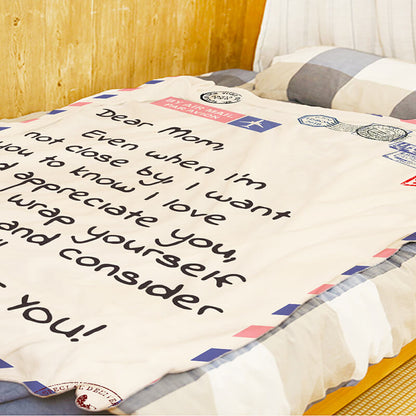 BY AIR MAIL
PAR AVION
Dear Mom,
Even when i'm
not close by, I want
you to know I love
appreciate you,
wrap yourself
and consider
YOU!
SPECIAL DELIVE